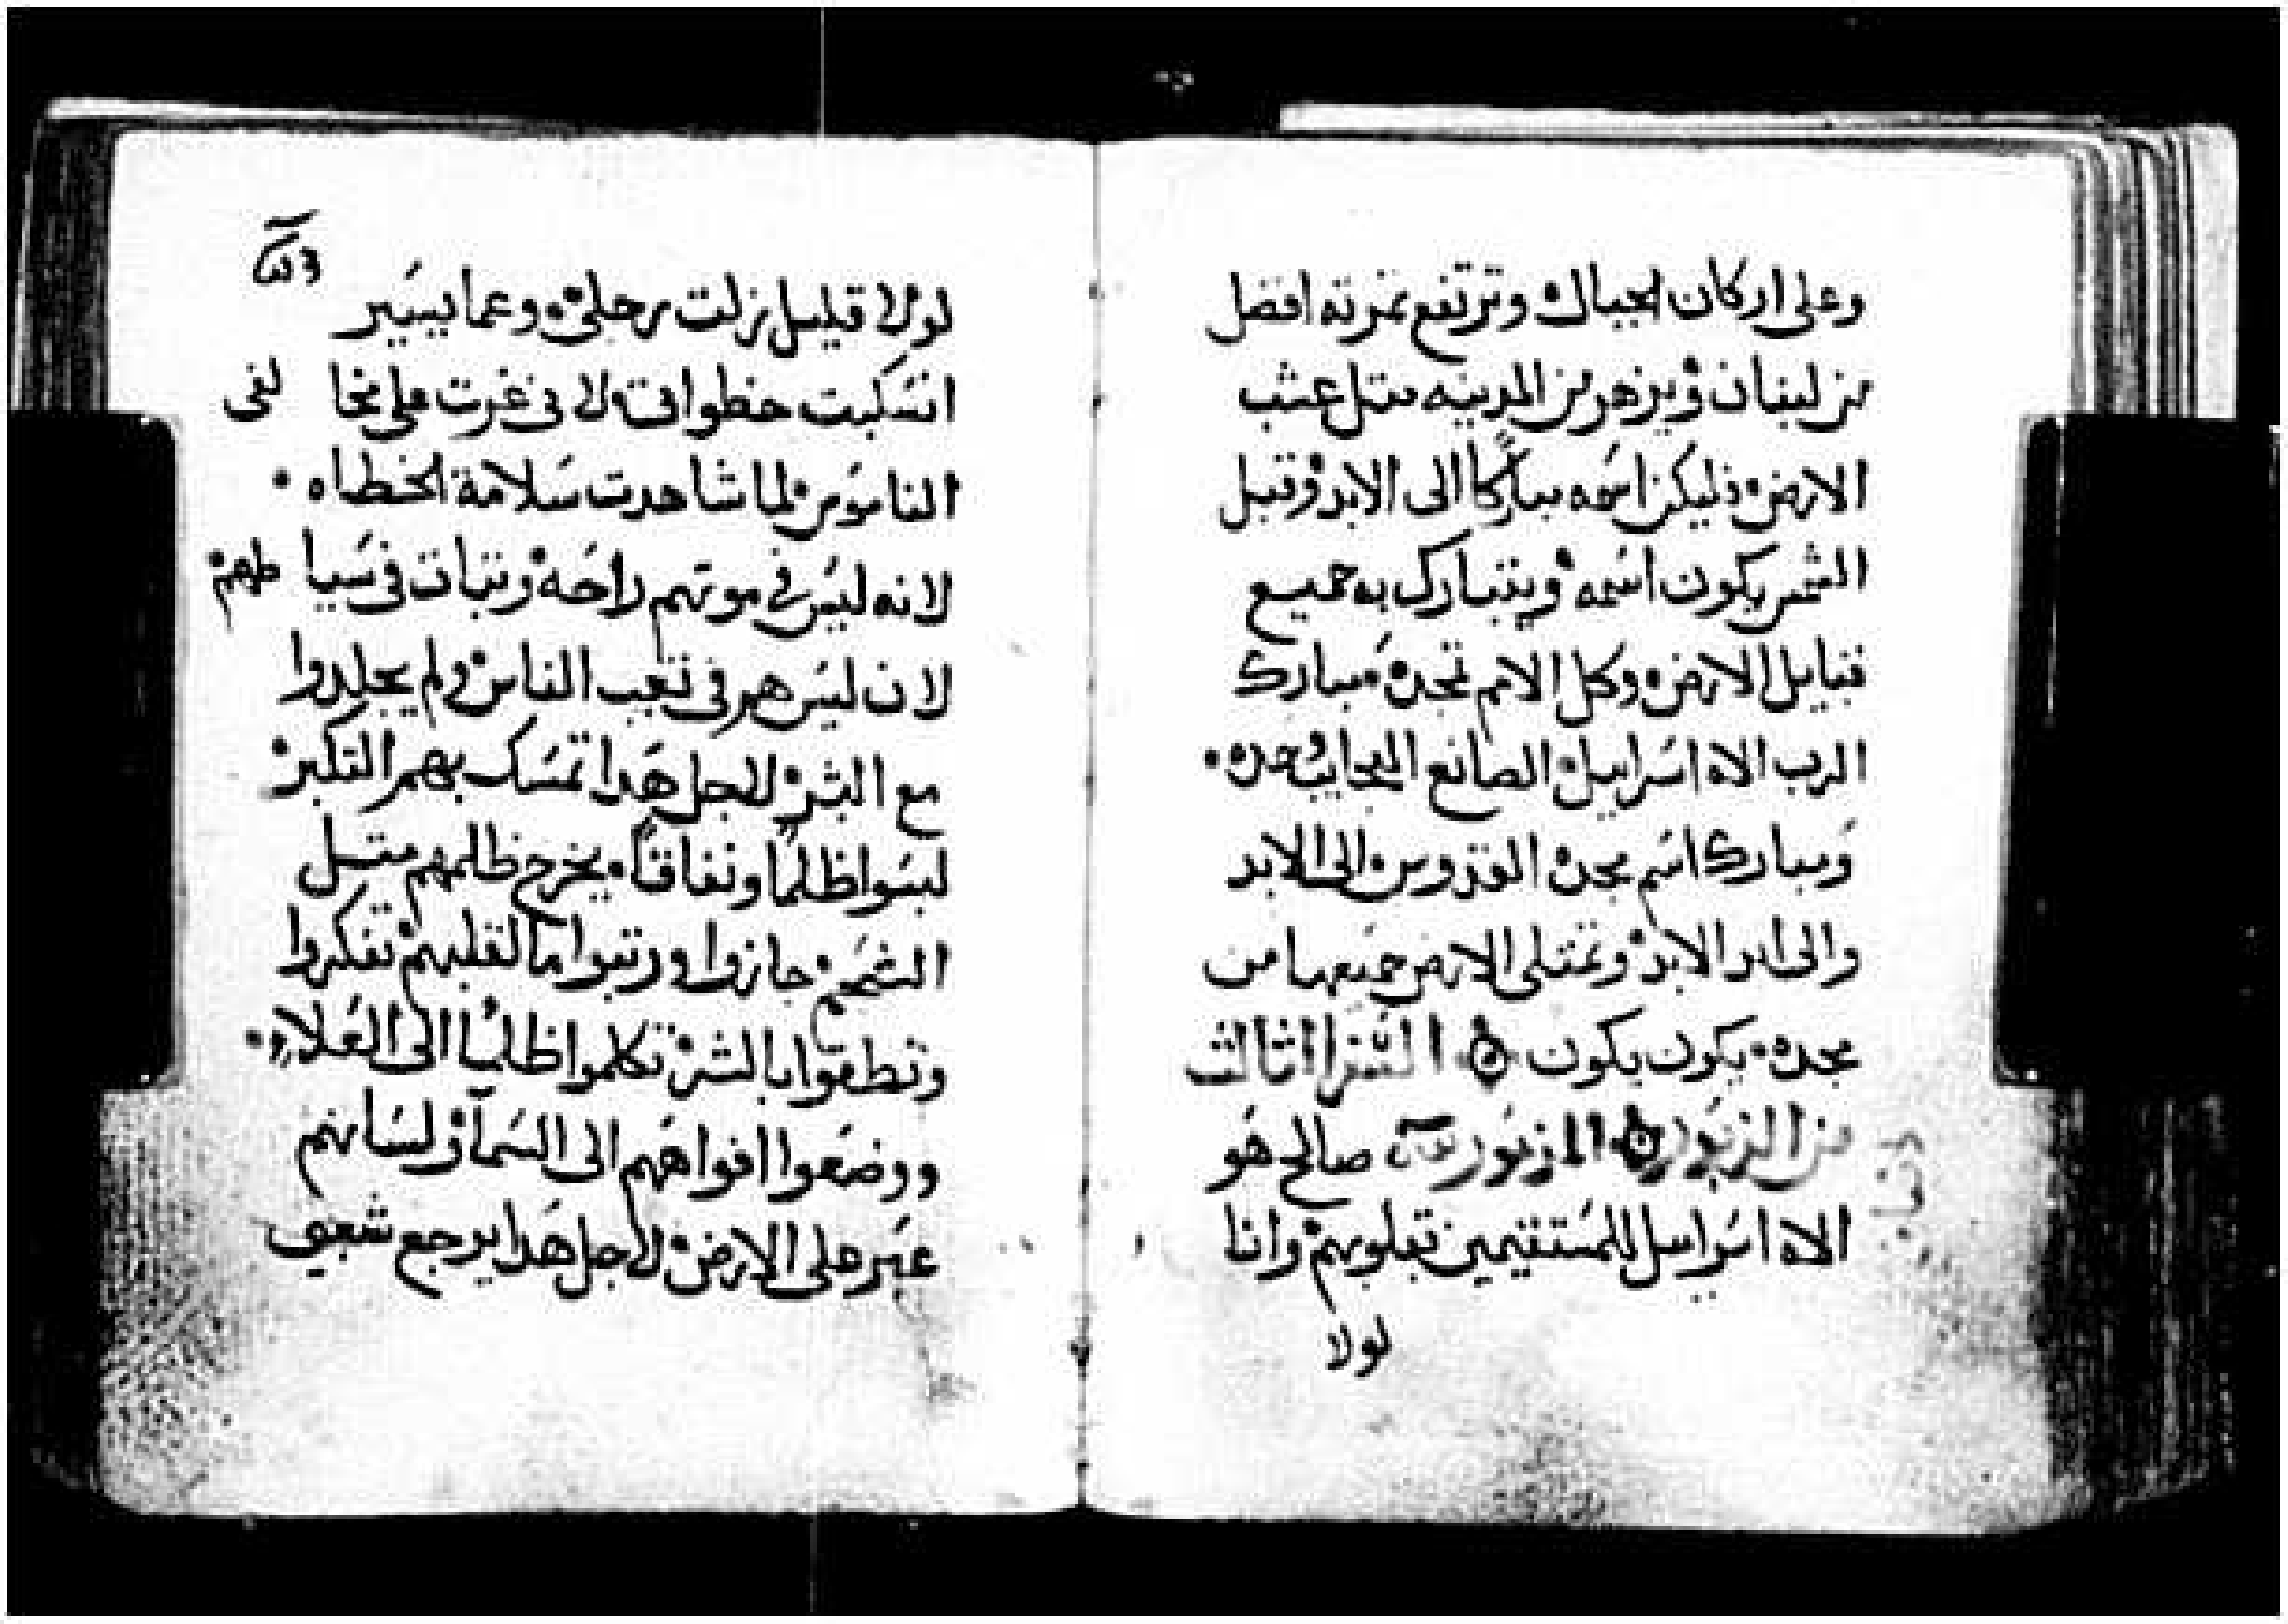 وعلى اركان الجبال وترتفع ثمرته افضل
من لبنان ويزهر من المدينه مثل عشب
الارض فليكن اسمه مباركًا الى الابد وقبل
الشمس يكون اسمه ويتبارك به جميع
قبايل الارض وكل الامم تمجده مبارك
الرب الاه اسراييل الصانع العجايب وحده
ومبارك اسم مجده القدوس الى الابد
والى ابد الابد وتمتلى الارض جميعها من
مجده يكون يكون الثالث
من الزبور المزمور صالح هو
الاه اسراييل للمستقيمين بقلوبهم وانا
لولا
لولا قليل زلت رجلى وعما يسير
انسكبت خطواتى لانى غرت على مخالفى
الناموس لما شاهدت سلامة الخطاه
لانه ليس فى موتهم راحه وثبات فى سياطهم
لان ليس هم فى تعب الناس ولم يجلدوا
مع البشر لاجل هدا تمسك بهم التكبر
لبسوا ظلمًا ونفاقًا يخرج ظلمهم مثل
الشحم جازوا ورتبوا ما لقلبهم تفكروا
ونطقوا بالشر تكلموا ظلمًا الى العلاء
ووضعوا افواههم الى السمآ ولسانهم
عبر على الارض لاجل هدا يرجع شعبى